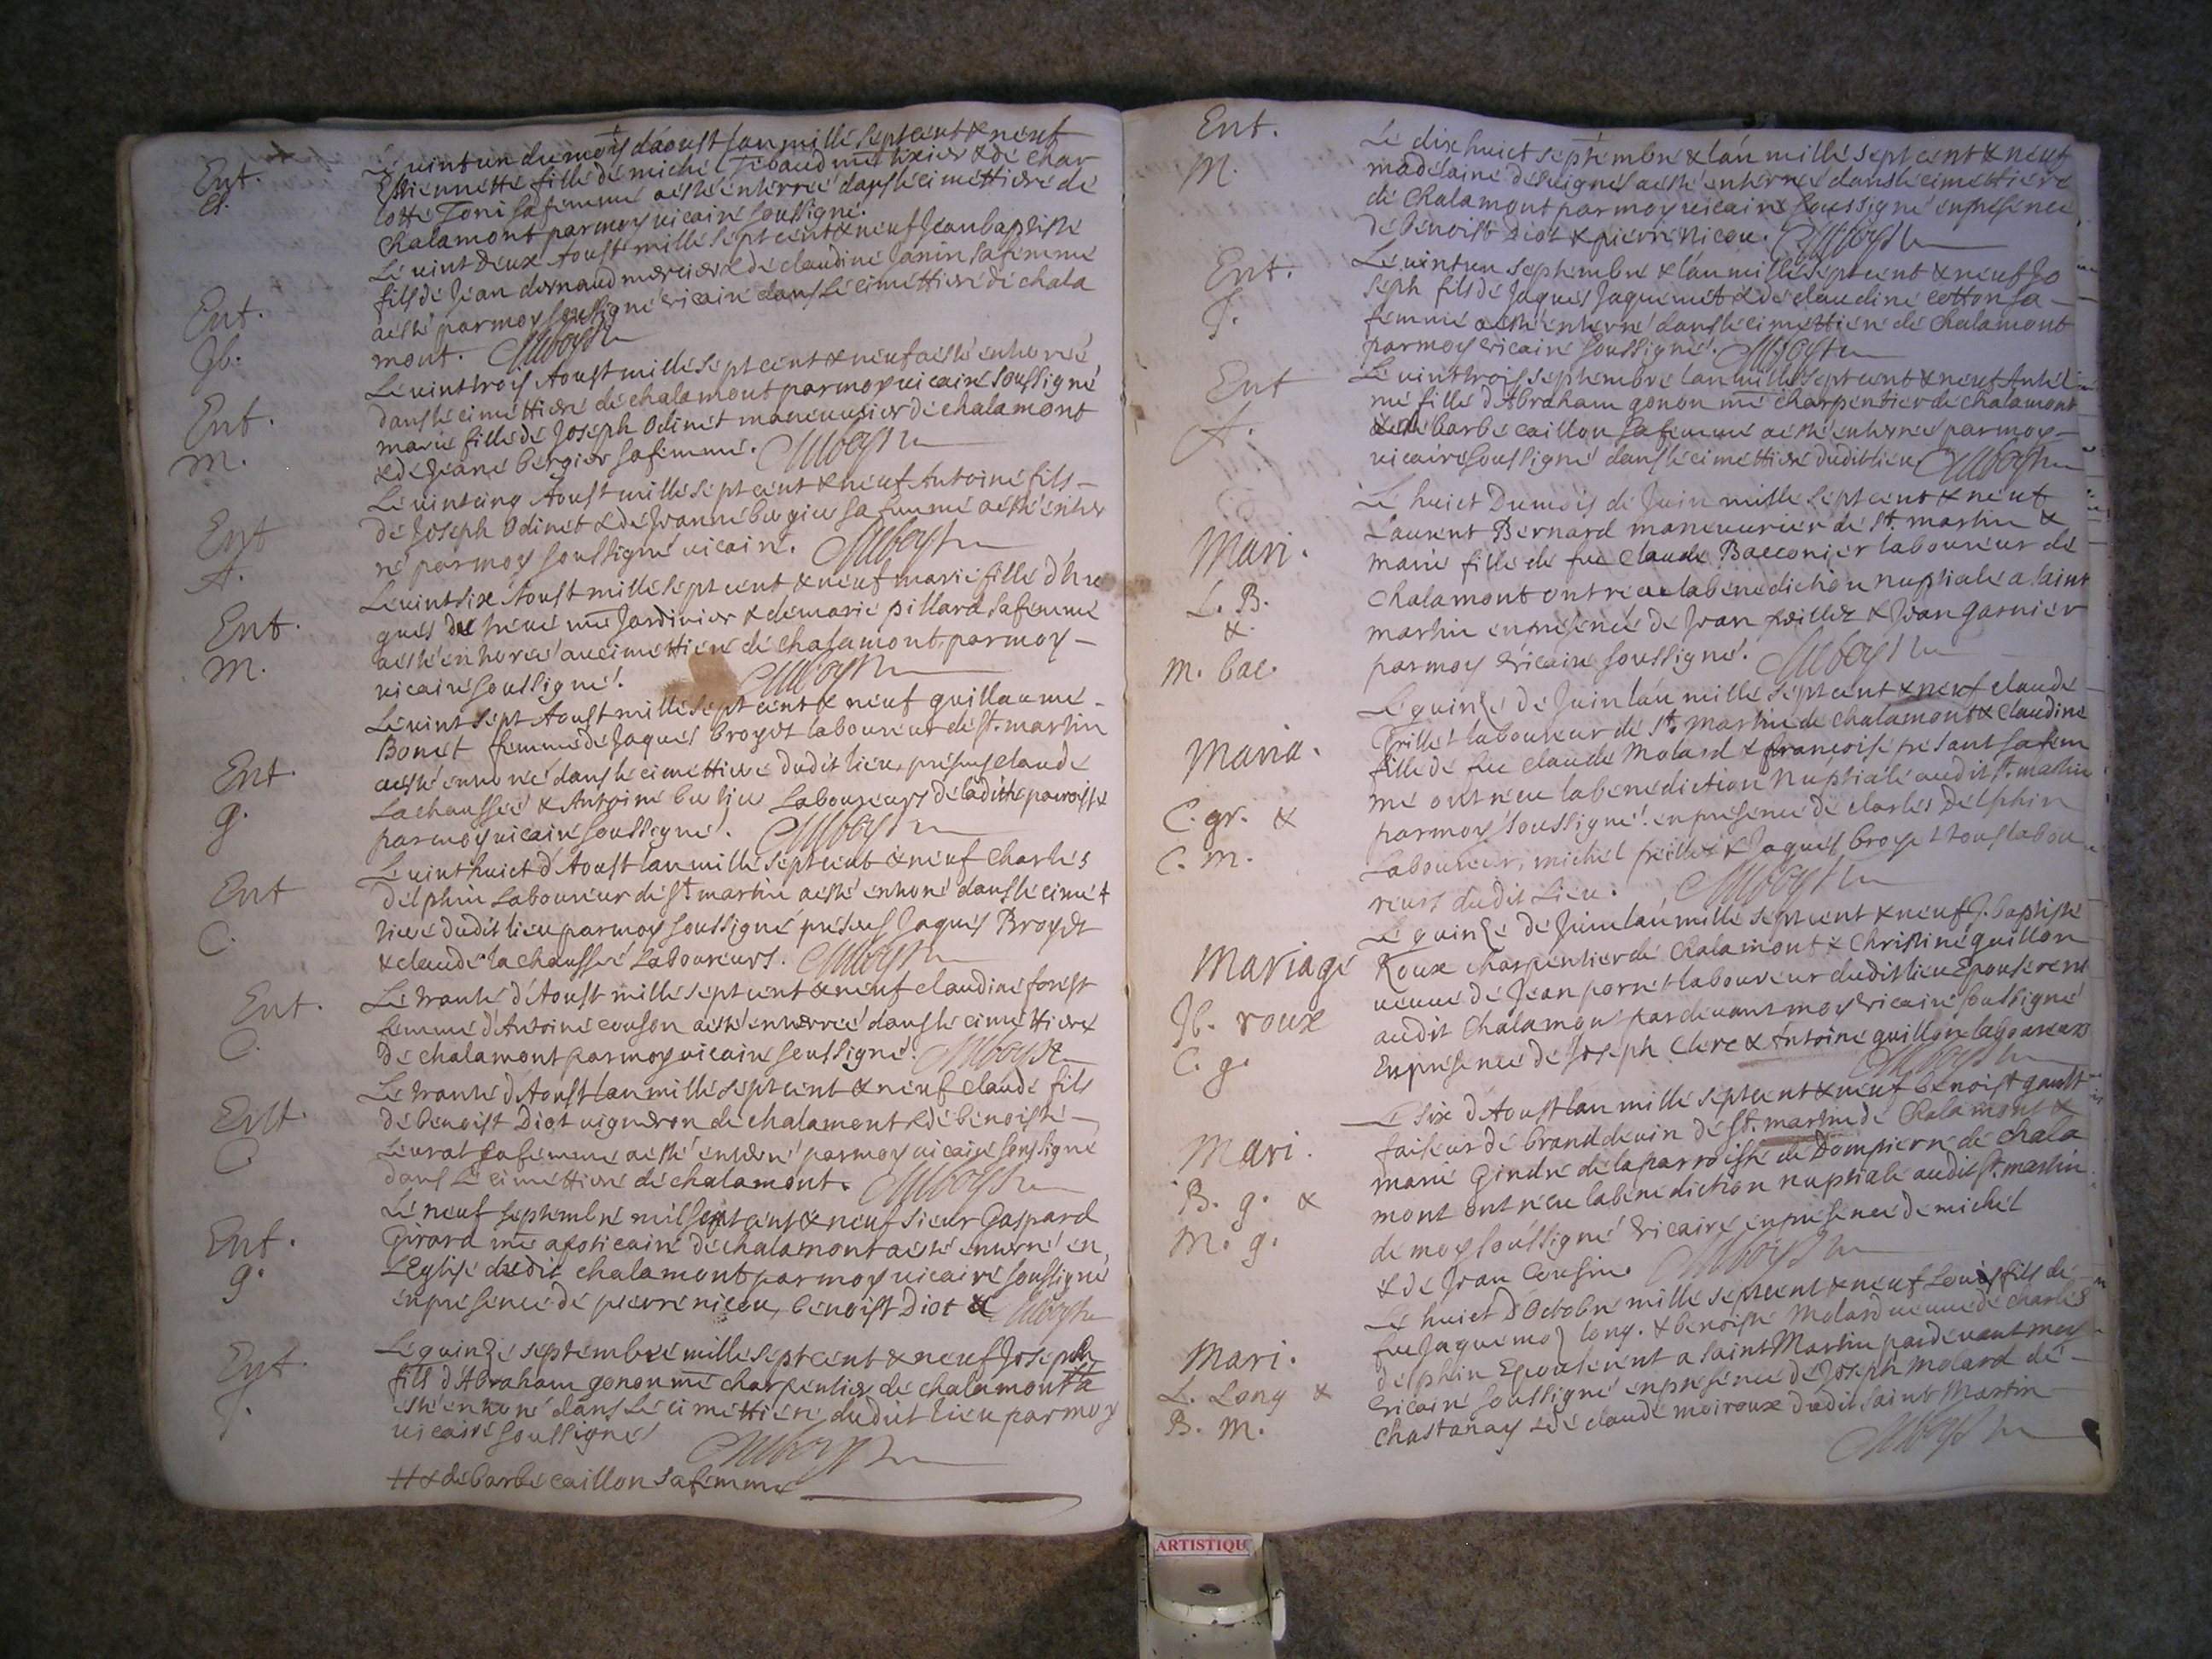 Ent.
Le vint un du mois d'aoust l'an mille sept cent & neuf
Estiennette fille de michel Tibaud me tixier & de char
lotte Toni sa femme a esté enterreé dans le cimettiere de
Chalamont par moy vicaire soussigné.
Ent.
Jb.
Le vint deux Aoust mille sept cent & neuf Jean baptiste
fils de Jean dernaud mercier & de claudine Janin sa femme
a esté par moy soussigné vicaire dans le cimettiere de chala
mont.
Ent.
m.
Le vint trois Aoust mille sept cent & neuf a esté enterreé
dans le cimettiere de chalamont par moy vicaire soussigné
marie fille de Joseph Odinet maneuvrier de chalamont
& de Jeane bergier sa femme.
Ent
A.
Le vint cinq Aoust mille sept cent & neuf Antoine fils
de Joseph Odinet & de Jeanne bergier sa femme a esté enter
ré par moy soussigné vicaire.
Ent.
m.
Le vint six Aoust mille sept cent & neuf marie fille d'hu
gues me Jardinier & de marie pillard sa femme
a esté enterreé au cimettiere de chalamont par moy
vicaire soussigné.
Ent.
g.
Le vint sept Aoust mille sept cent & neuf guillaume
Bonet femme de Jaques broyet laboureur de st. martin
a esté enterreé dans le cimettiere dudit lieu, presens claude
Lachausseé & Antoine Laboureurs de laditte paroisse
par moy vicaire soussigné.
Ent
C.
Le vint huict d'Aoust l'an mille sept cent & neuf Charles
delphin Laboureur de st martin a esté enterré dans le cimet
tiere dudit lieu par moy soussigné presens Jaques Broyet
& claude lachausseé Laboureurs.
Ent.
C.
Le trante d'Aoust mille sept cent & neuf claudine forest
femme d'Antoine couson a esté enterreé dans le cimettiere
de chalamont par moy vicaire soussigné.
Ent.
C.
Le trante d'Aoust l'an mille sept cent & neuf Claude fils
de benoist Diot vigneron de chalamont & de benoiste
Leurat sa femme a esté enterré par moy vicaire soussigné
dans le cimettiere de chalamont.
Ent.
g.
Le neuf septembre mil sept cent & neuf sieur Gaspard
Girard me apoticaire de chalamont a esté enterré en
L'Eglise dudit chalamont par moy vicaire soussigné
en presence de pierre nicou, benoist Diot &
Ent.
J.
Le quinze septembre mille sept cent & neuf Joseph
fils d'Abraham gonon me charpentier de chalamont # a
esté enterré dans le cimettiere dudit lieu par moy
vicaire soussigné
# & de barbe caillon sa femme
Ent.
M.
Le dix huict septembre & l'an mille sept cent & neuf
madelaine a esté enterreé dans le cimettiere
de Chalamont par moy vicaire soussigné en presence
de benoist Diot & pierre Nicou.
Ent.
J.
Le vint un septembre & l'an mille sept cent & neuf Jo
seph fils de Jaques Jaquemet & de claudine cotton sa
femme a esté enterré dans le cimettiere de Chalamont
par moy vicaire soussigné.
Ent
A.
Le vint trois septembre l'an mille sept cent & neuf Anteli
me fille d'Abraham gonon me charpentier de chalamont
& de barbe caillon sa femme a esté enterreé par moy
vicaire soussigné dans le cimettiere dudit lieu
Mari.
L. B.
&
m. bac.
Le huict Du mois de Juin mille sept cent & neuf
Laurent Bernard maneuvrier de st. martin &
marie fille de feu Claude Bacconier laboureur de
Chalamont ont receu la benediction nuptiale a saint
martin en presence de Jean peillet & Jean garnier
par moy vicaire soussigné.
Maria.
C. gr. &
C. m.
Le quinze de Juin l'an mille sept cent & neuf claude
Grillet laboureur de st. martin de chalamont & Claudine
fille de feu claude Molard & francoise presant sa fem
me ont receu la benediction Nuptiale audit st. martin
par moy soussigné en presence de charles Delphin
Laboureur, michel peillet & Jaques broyet tous labou
reurs dudit Lieu.
Mariage
Jb. roux
C. g.
Le quinze de Juin l'an mille sept cent & neuf J. baptiste
Roux charpentier de Chalamont & Christine guillon
veuve de Jean pornet laboureur dudit lieu Epouserent
audit Chalamont par devant moy vicaire soussigné
En presence de Joseph Clerc & Antoine guillon laboureurs
Mari.
B. g. &
m. g.
Le six d'Aoust l'an mille sept cent & neuf benoist gault
faiseur de brand de vin de st. martin de Chalamont &
marie Gindre de la parroisse de Dompierre de Chala
mont ont receu la benediction nuptiale audit st. martin
de moy soussigné vicaire en presence de michel
& de Jean Cousin.
Mari.
L. Long &
B. m.
Le huict d'Octobre mille sept cent & neuf Louis fils de
feu Jaquemoz long. & benoiste Molard veuve de charles
delphin Epouserent a saint Martin par devant moy
vicaire soussigné en presence de Joseph molard de
chastanay & de claude moiroux dudit saint Martin
ARTISTIQU